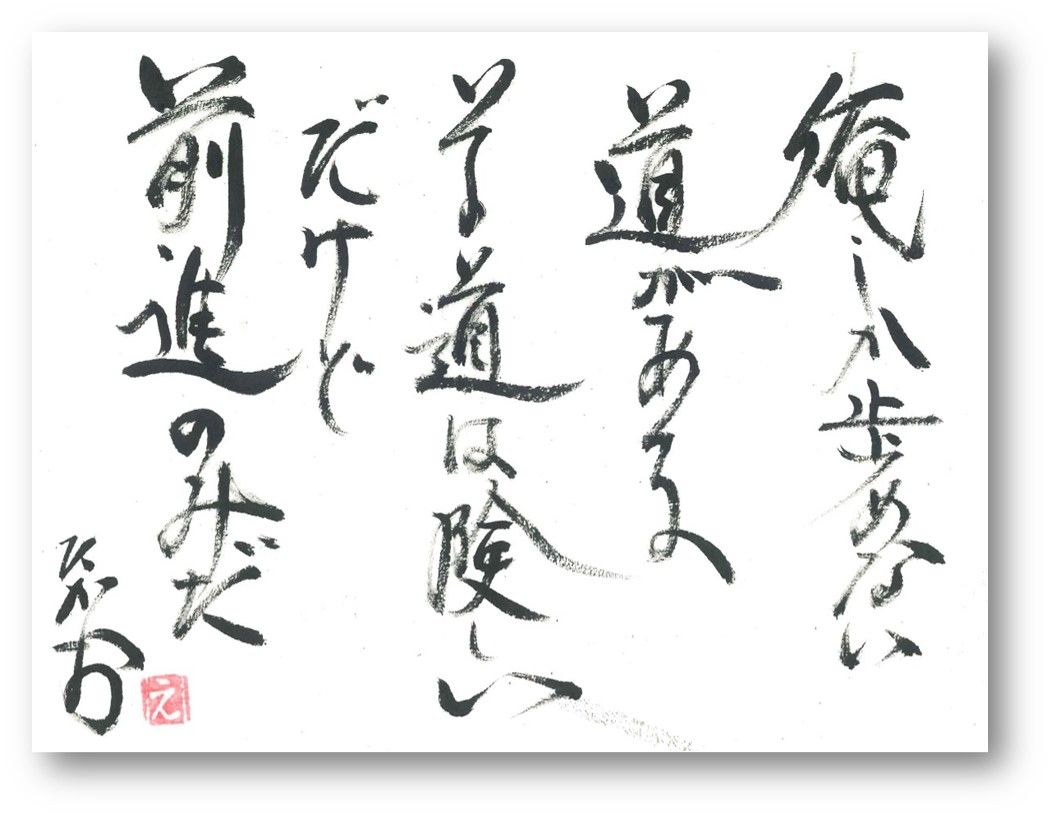 俺しか歩めない
道がある
その道は険しい
だけど
前進のみだ
え